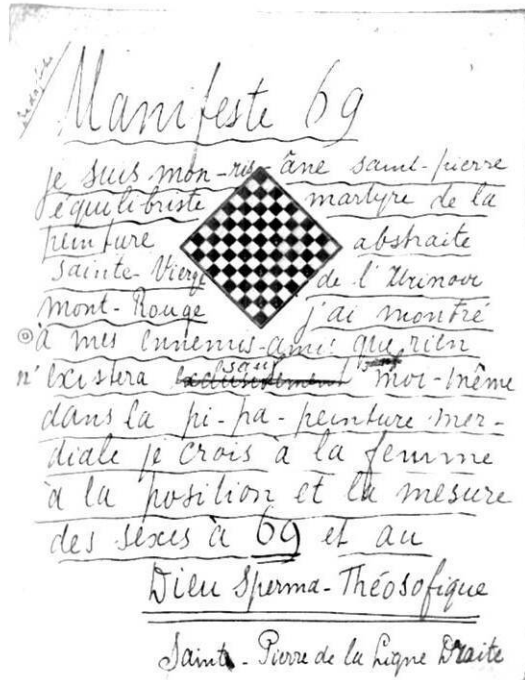 Manifeste 69
je suis mon-ris-âne saint-pierre
équilibriste martyre de la
peinture abstraite
Sainte-Vierge de l'Urinoir
Mont-Rouge j'ai montré
à mes ennemis-amis que rien
n'existera sauf moi-même
dans la pi-pa-peinture mer-
diale je crois à la femme
à la position et la mesure
des sexes à 69 et au
Dieu Sperma-Théosofique
Sainte-Pierre de la Ligne Draite